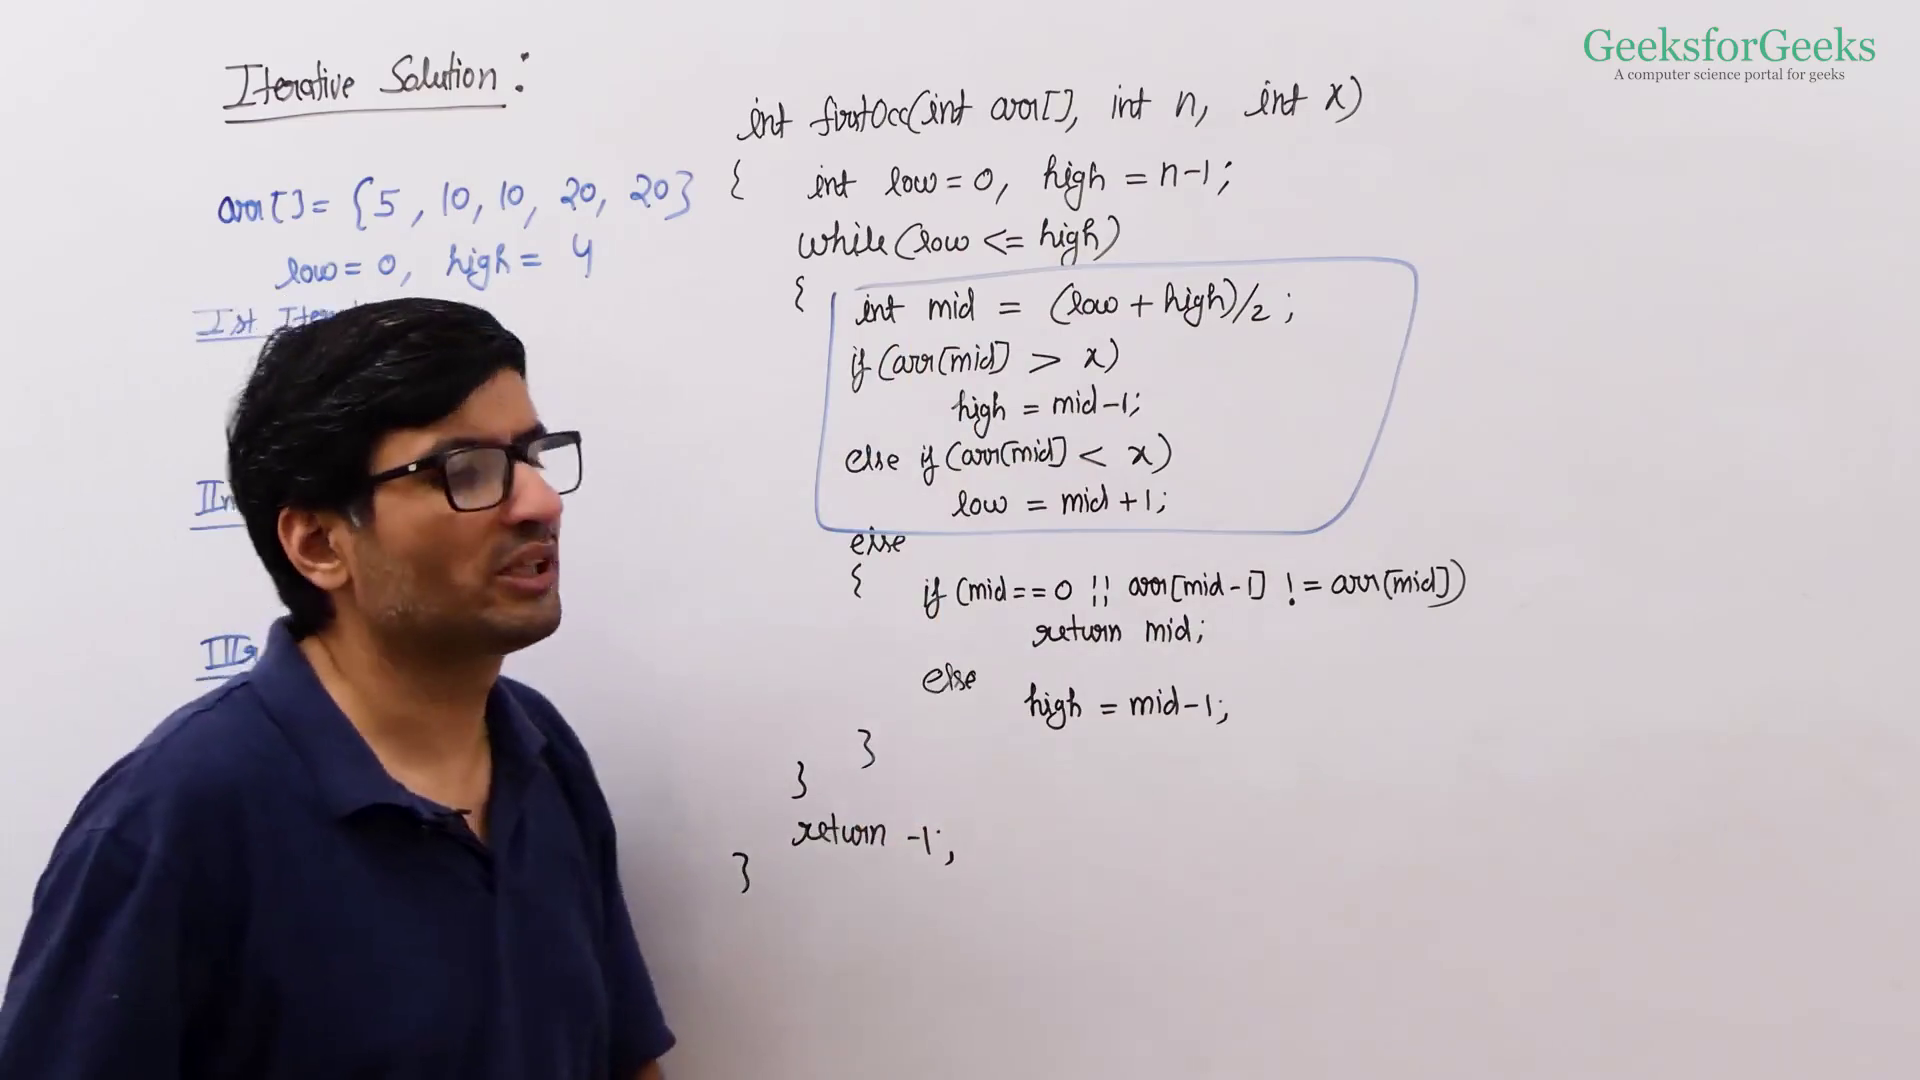 GeeksforGeeks
A computer science portal for geeks
Iterative Solution:
arr[] = {5, 10, 10, 20, 20}
low = 0, high = 4
Ist
int firstOcc(int arr[], int n, int x)
{ int low = 0, high = n-1;
while (low <= high)
{ int mid = (low + high)/2;
if (arr[mid] > x)
high = mid-1;
else if (arr[mid] < x)
low = mid+1;
else
{ if (mid == 0 || arr[mid-1] != arr[mid])
return mid;
else
high = mid-1;
}
}
return -1;
}